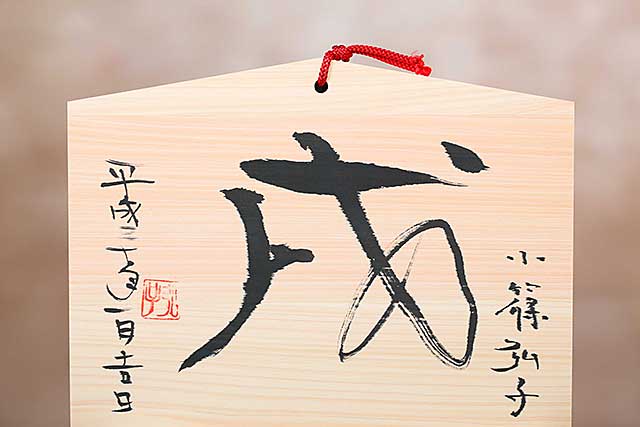 小篠弘子
戌
平成三十年一月吉日